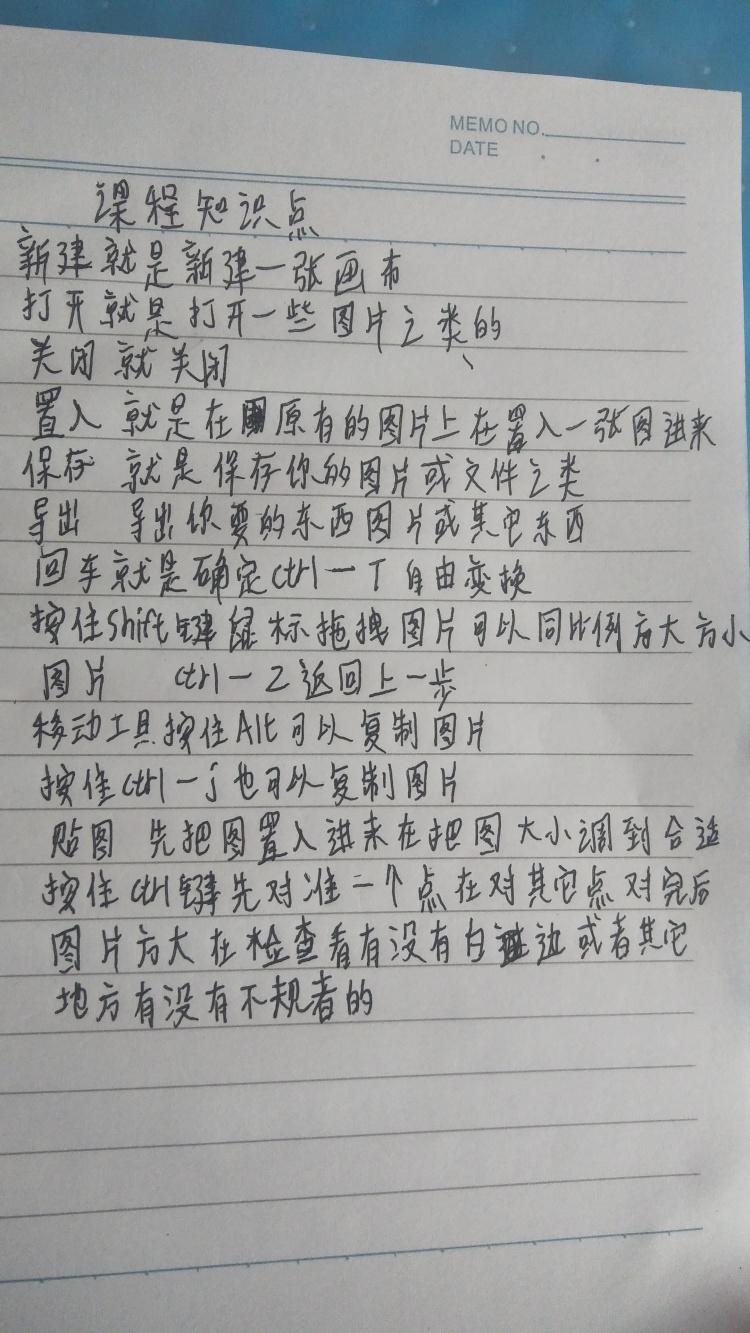 MEMO NO.
DATE
课程知识点
新建就是新建一张画布
打开就是打开一些图片之类的
关闭 就关闭
置入 就是在原有的图片上在置入一张图进来
保存 就是保存你的图片或文件之类
导出 导出你要的东西图片或其它东西
回车就是确定ctrl一T自由变换
按住Shift键鼠标拖拽图片可以同比例方大方小
图片 ctrl一Z返回上一步
移动工具按住Alt可以复制图片
按住ctrl一j也可以复制图片
贴图 先把图置入进来在把图大小调到合适
按住ctrl键先对准一个点在对其它点对完后
图片方大在检查看有没有白边或者其它
地方有没有不规者的